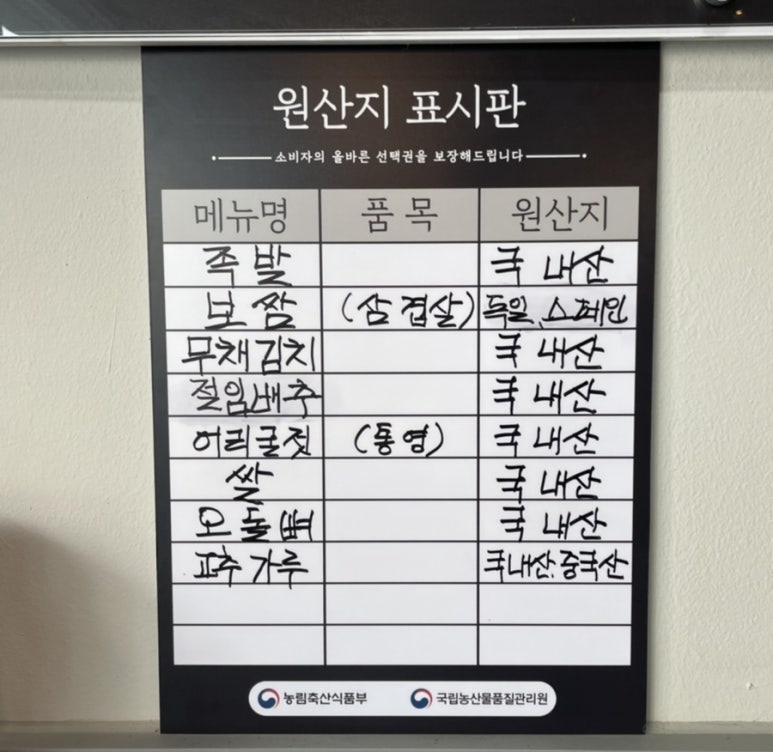 원산지 표시판
소비자의 올바른 선택권을 보장해드립니다
메뉴명 품목 원산지
족발 국내산
보쌈 (삼겹살) 독일, 스페인
무채김치 국내산
절임배추 국내산
어리굴젓 (통영) 국내산
쌀 국내산
오돌뼈 국내산
고추가루 국내산, 중국산
농림축산식품부 국립농산물품질관리원